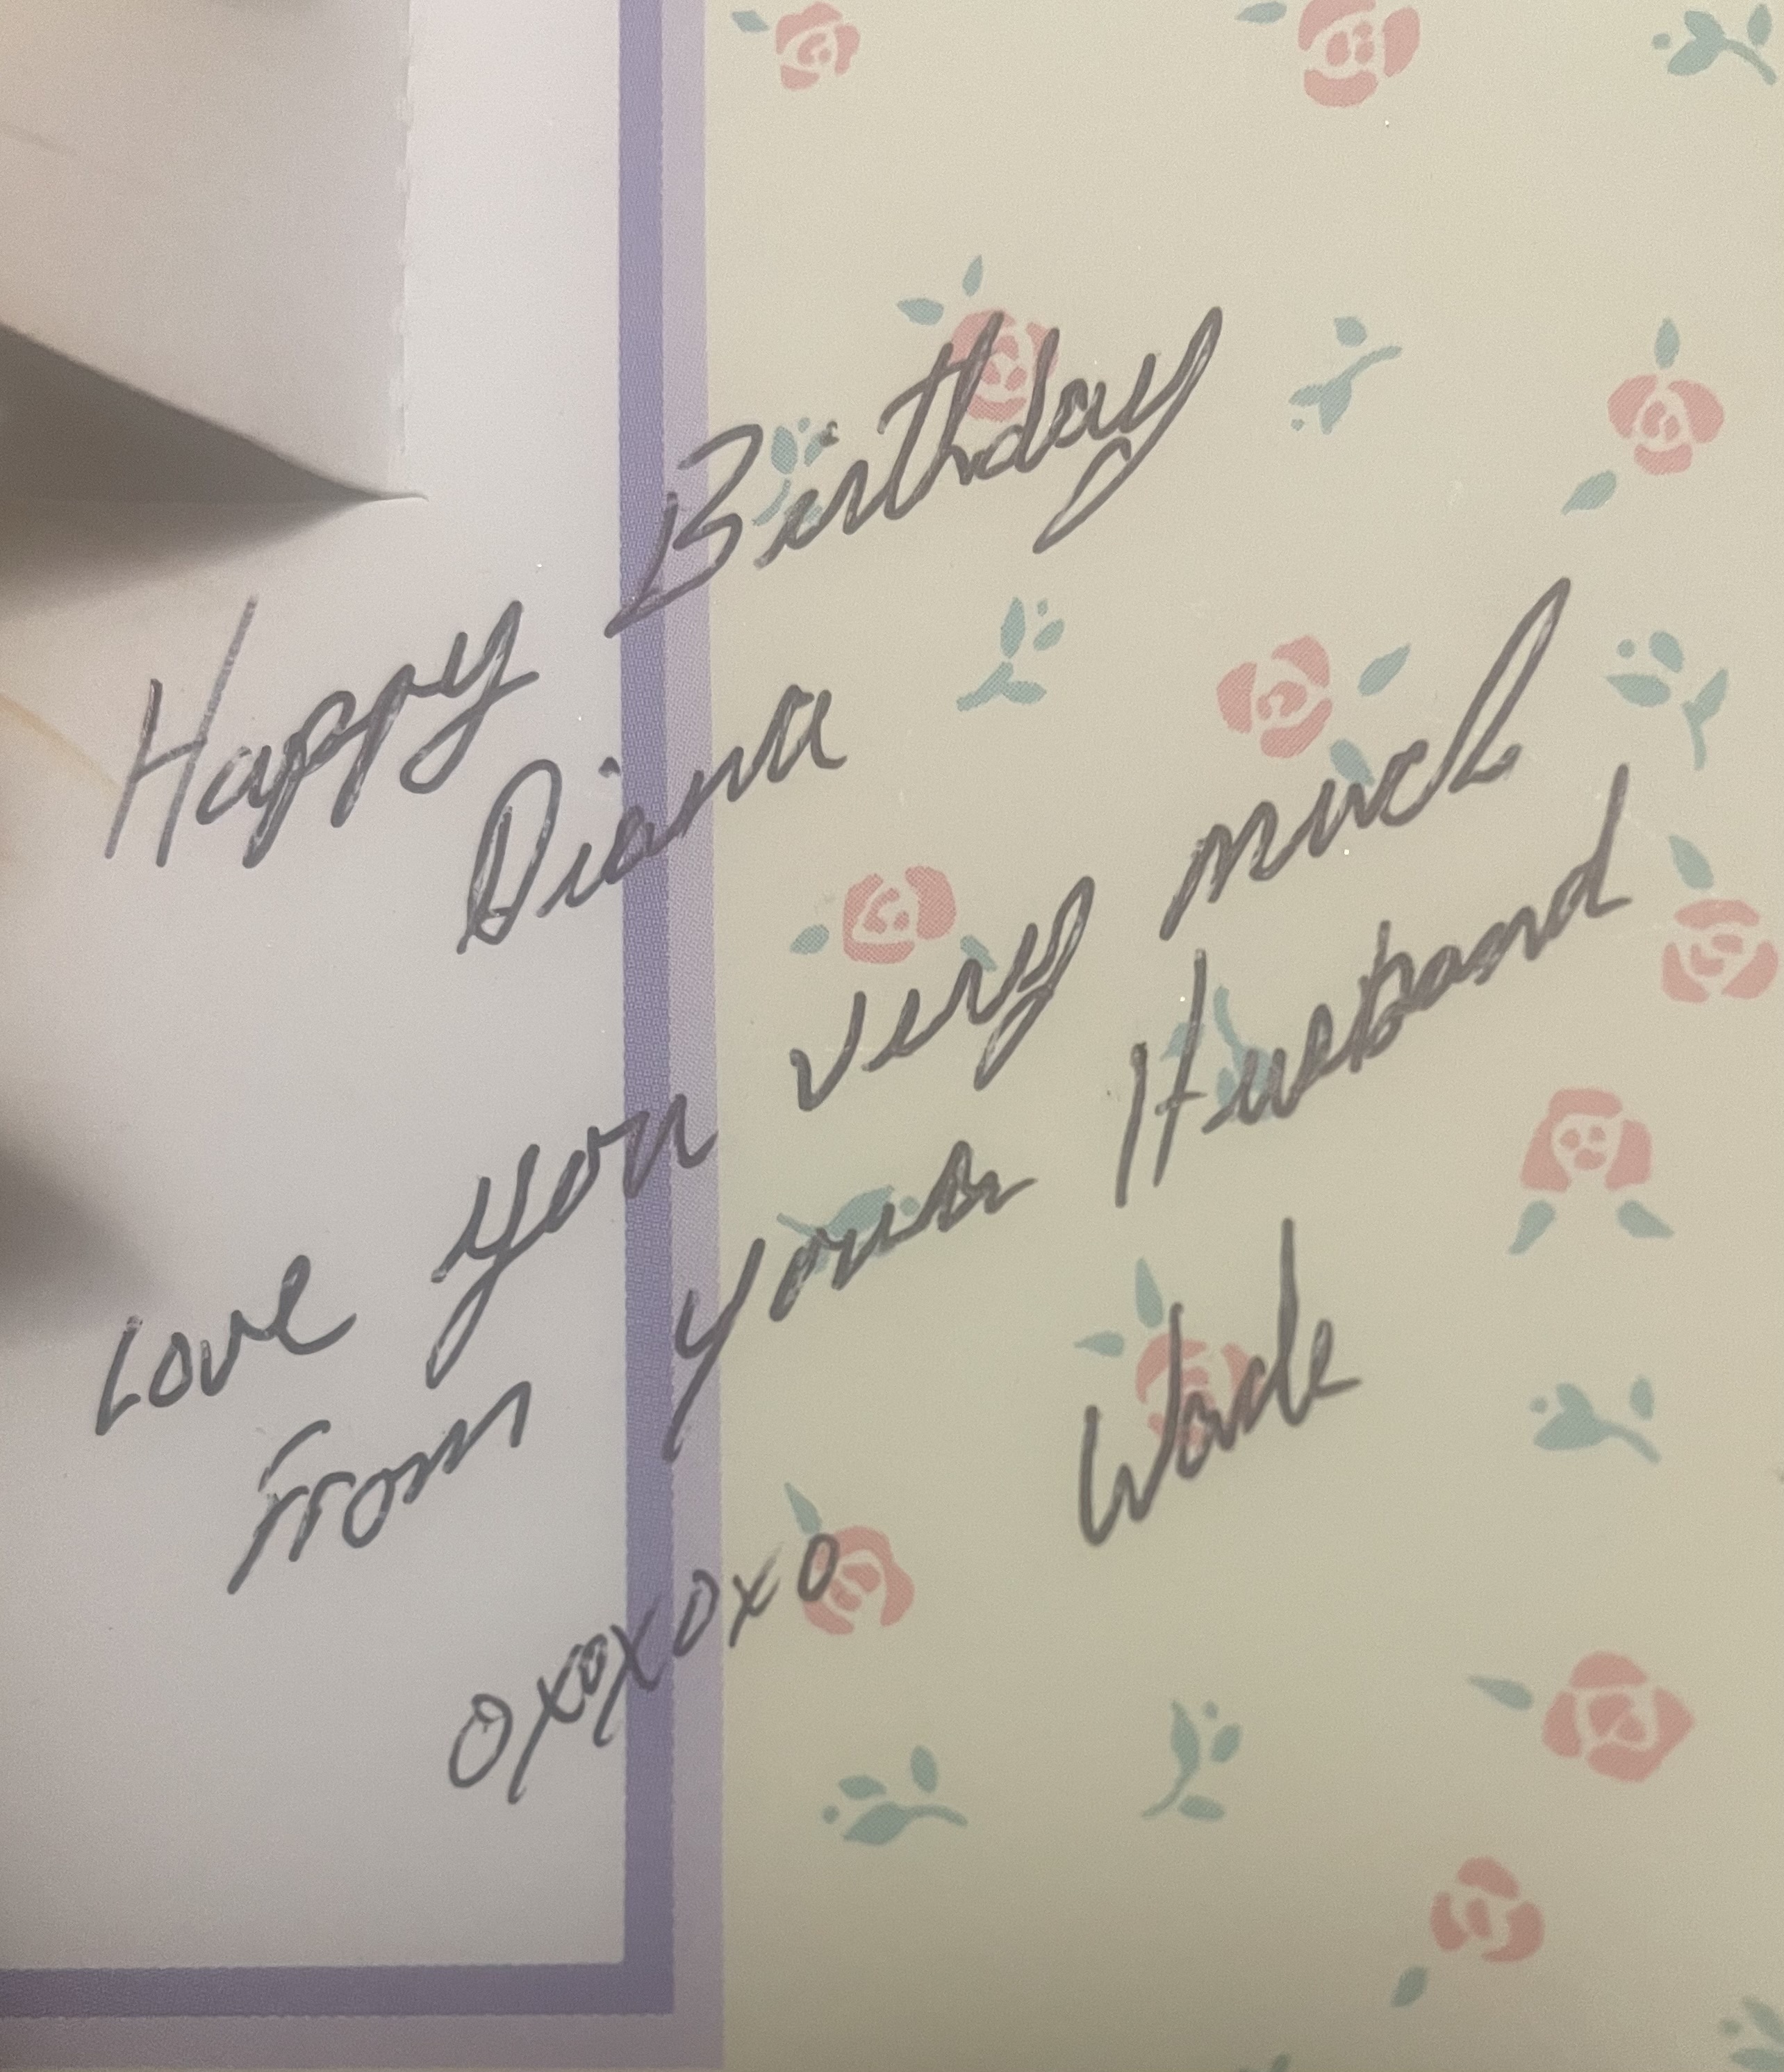 Happy Birthday
Diana
Love you very much
From your Husband
Wade
oxoxoxo